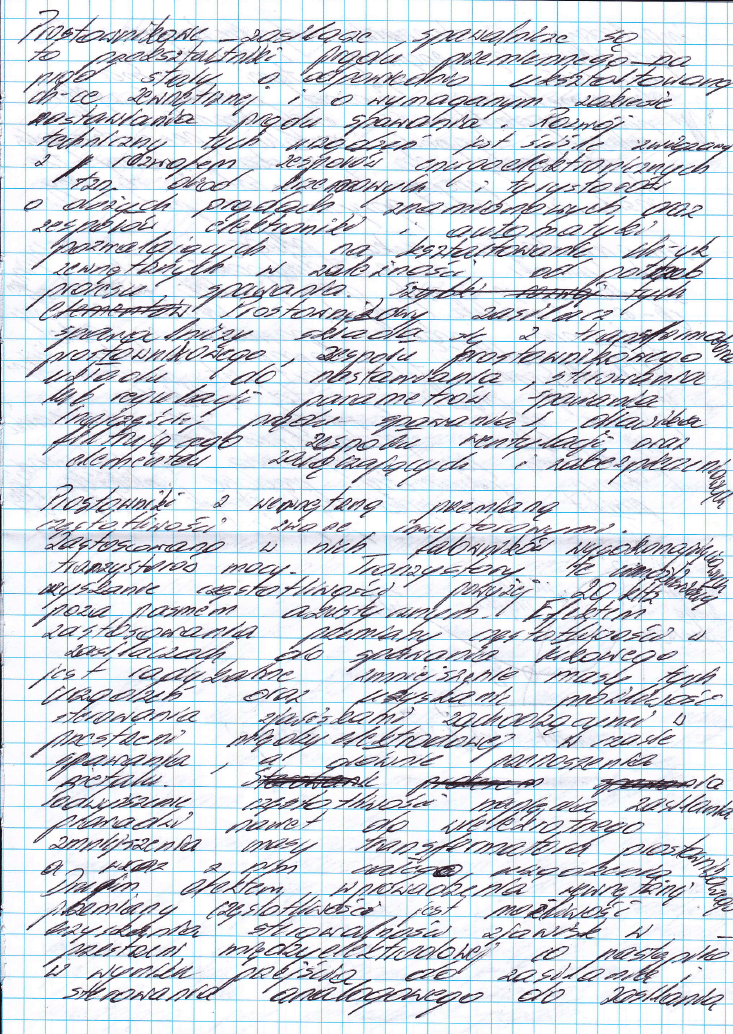 Prostownikowe zasilacze spawalnicze są
to przekształtniki prądu przemiennego na
prąd stały o odpowiednio ukształtowanej
ch-ce zewnętrznej i o wymaganym zakresie
nastawiania prądu spawania. Rozwój
techniczny tych urządzeń jest ściśle związany
z rozwojem zespołów energoelektronicznych
tzn. diod krzemowych i tyrystorów
o dużych prądach znamionowych oraz
zespołów elektroniki i automatyki
pozwalających na kształtowanie ch-yk
zewnętrznych w zależności od potrzeb
procesu spawania. Szybki rozwój tych
elementów Prostownikowy zasilacz
spawalniczy składa się z transformatora
prostownikowego, zespołu prostownikowego
układu do nastawiania, sterowania
lub regulacji parametrów spawania
prądu spawania, dławika
zespołu wentylacji oraz
elementów załączających i zabezpieczających
Prostowniki z wewnętrzną przemianą
częstotliwości zwane inwertorowymi.
Zastosowano w nich falowniki
tranzystorów mocy. Tranzystory te umożliwiają
uzyskanie częstotliwości powyżej 20 kHz
poza pasmem akustycznym. Efektem
zastosowania przemiany częstotliwości w
zasilaczach do spawania łukowego
jest radykalne zmniejszenie masy tych
urządzeń oraz uzyskanie możliwości
sterowania zjawiskami zachodzącymi w
przestrzeni międzyelektrodowej w czasie
spawania, a głównie przenoszenia
metalu.
Podwyższenie częstotliwości napięcia zasilania
prowadzi nawet do wielokrotnego
zmniejszenia masy transformatora prostownikowego
a wraz z nim całego urządzenia
Drugim efektem wprowadzenia wewnętrznej
przemiany częstotliwości jest możliwość
sterowalności zjawisk w
przestrzeni międzyelektrodowej co nastąpiło
w wyniku przejścia od zasilania i
sterowania analogowego do zasilania